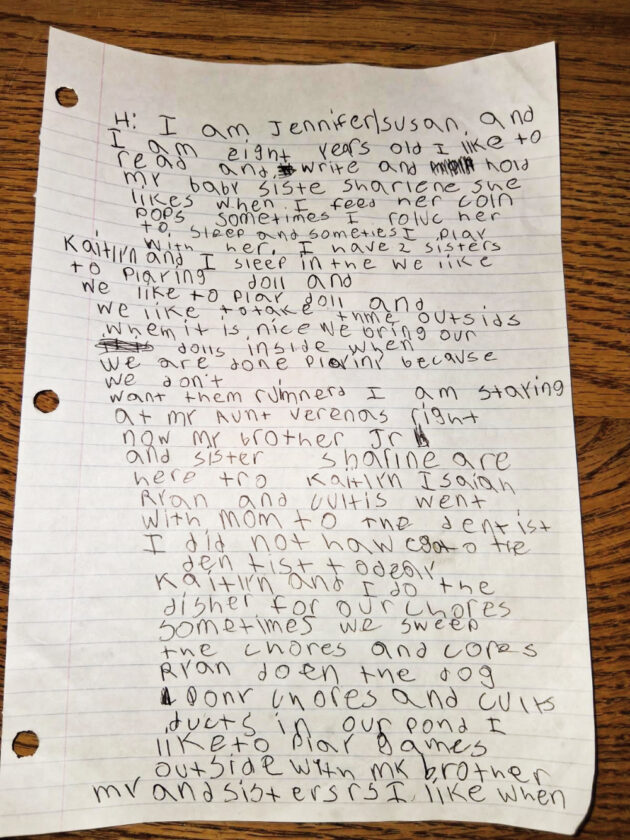 Hi I am Jennifer/susan, and
I am eight years old I like to
read and write and hold
my baby siste sharlene she
likes when I feed her coin
pops sometimes I her
to sleep and someties I play
with her. I have 2 sisters
Kaitlyn and I sleep in the we like
to playing doll and
we like to play doll and
we like totake thme outsids
when it is nice we bring our
dolls inside when
we are done playiny because
we don't
want them rumnerd I am staying
at my Aunt verenas right
now my brother Jr
and sister sharine are
here tro Kaitlyn Isaiah
Ryan and cultis went
with Mom to the dentist
I did not haw to the
dentist
Kaitlyn and I do the
disher for our chores
sometimes we sweep
the chores and cores
Ryan doen the dog
Pony chores and cults
ducts in our pond I
liketo play games
outside with my brother
my andsistersrs I like when